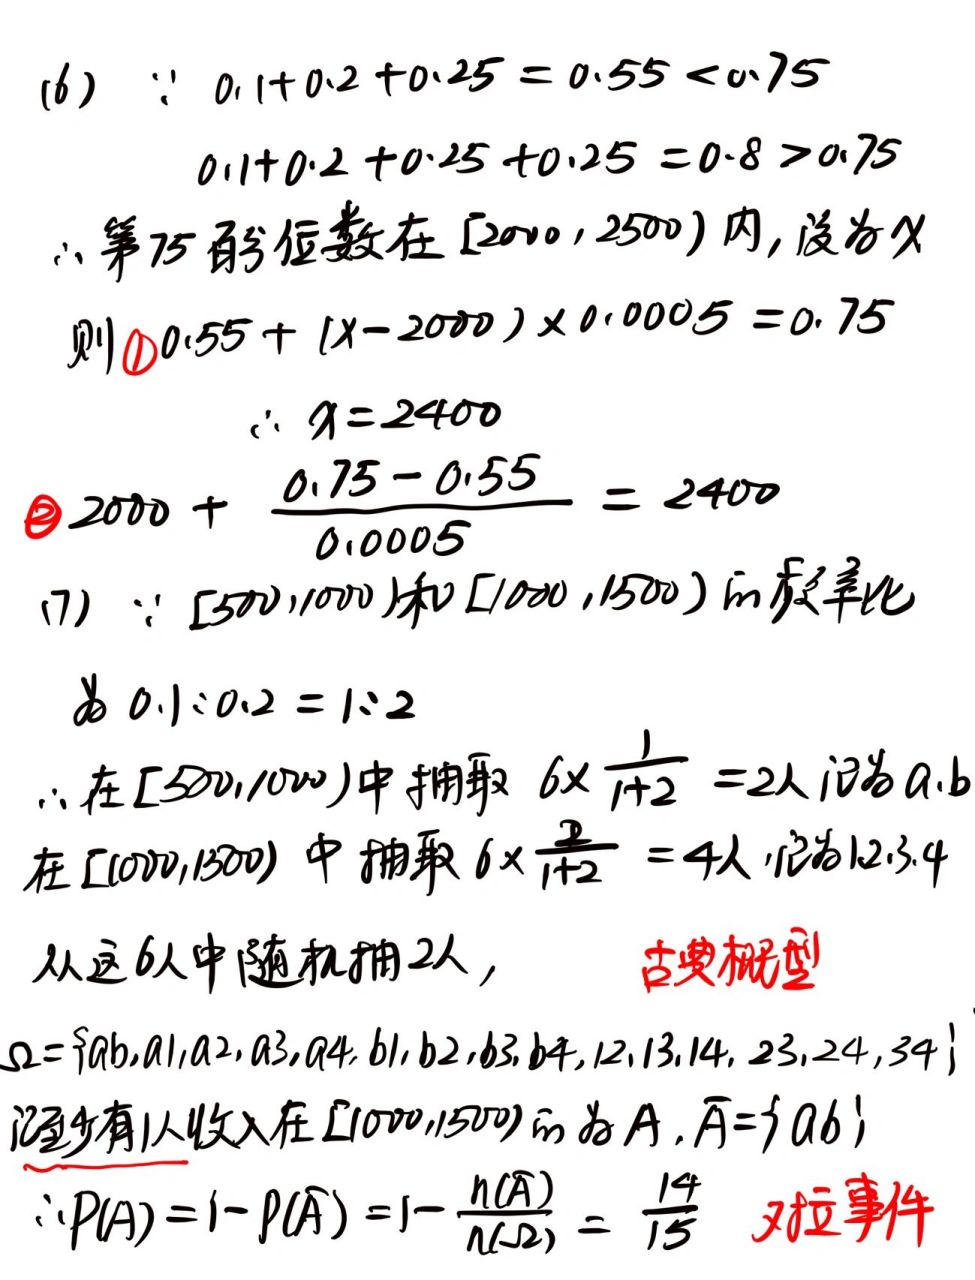 (6) ∵ 0.1+0.2+0.25=0.55<0.75
0.1+0.2+0.25+0.25=0.8>0.75
∴第75百分位数在[2000,2500)内,设为x
则①0.55+(x-2000)×0.0005=0.75
∴ x=2400
②2000+\frac{0.75-0.55}{0.0005}=2400
(7) ∵ [500,1000)和[1000,1500)的频率比
为0.1:0.2=1:2
∴在[500,1000)中抽取 6×\frac{1}{1+2}=2人记为a.b
在[1000,1500)中抽取6×\frac{2}{1+2}=4人,记为1.2.3.4
从这6人中随机抽2人, 古典概型
Ω={ab,a1,a2,a3,a4,b1,b2,b3,b4,12,13,14,23,24,34}
记至少有1人收入在[1000,1500)的为A,Ā={ab}
∴P(A)=1-P(Ā)=1-\frac{n(Ā)}{n(Ω)}=\frac{14}{15} 对立事件